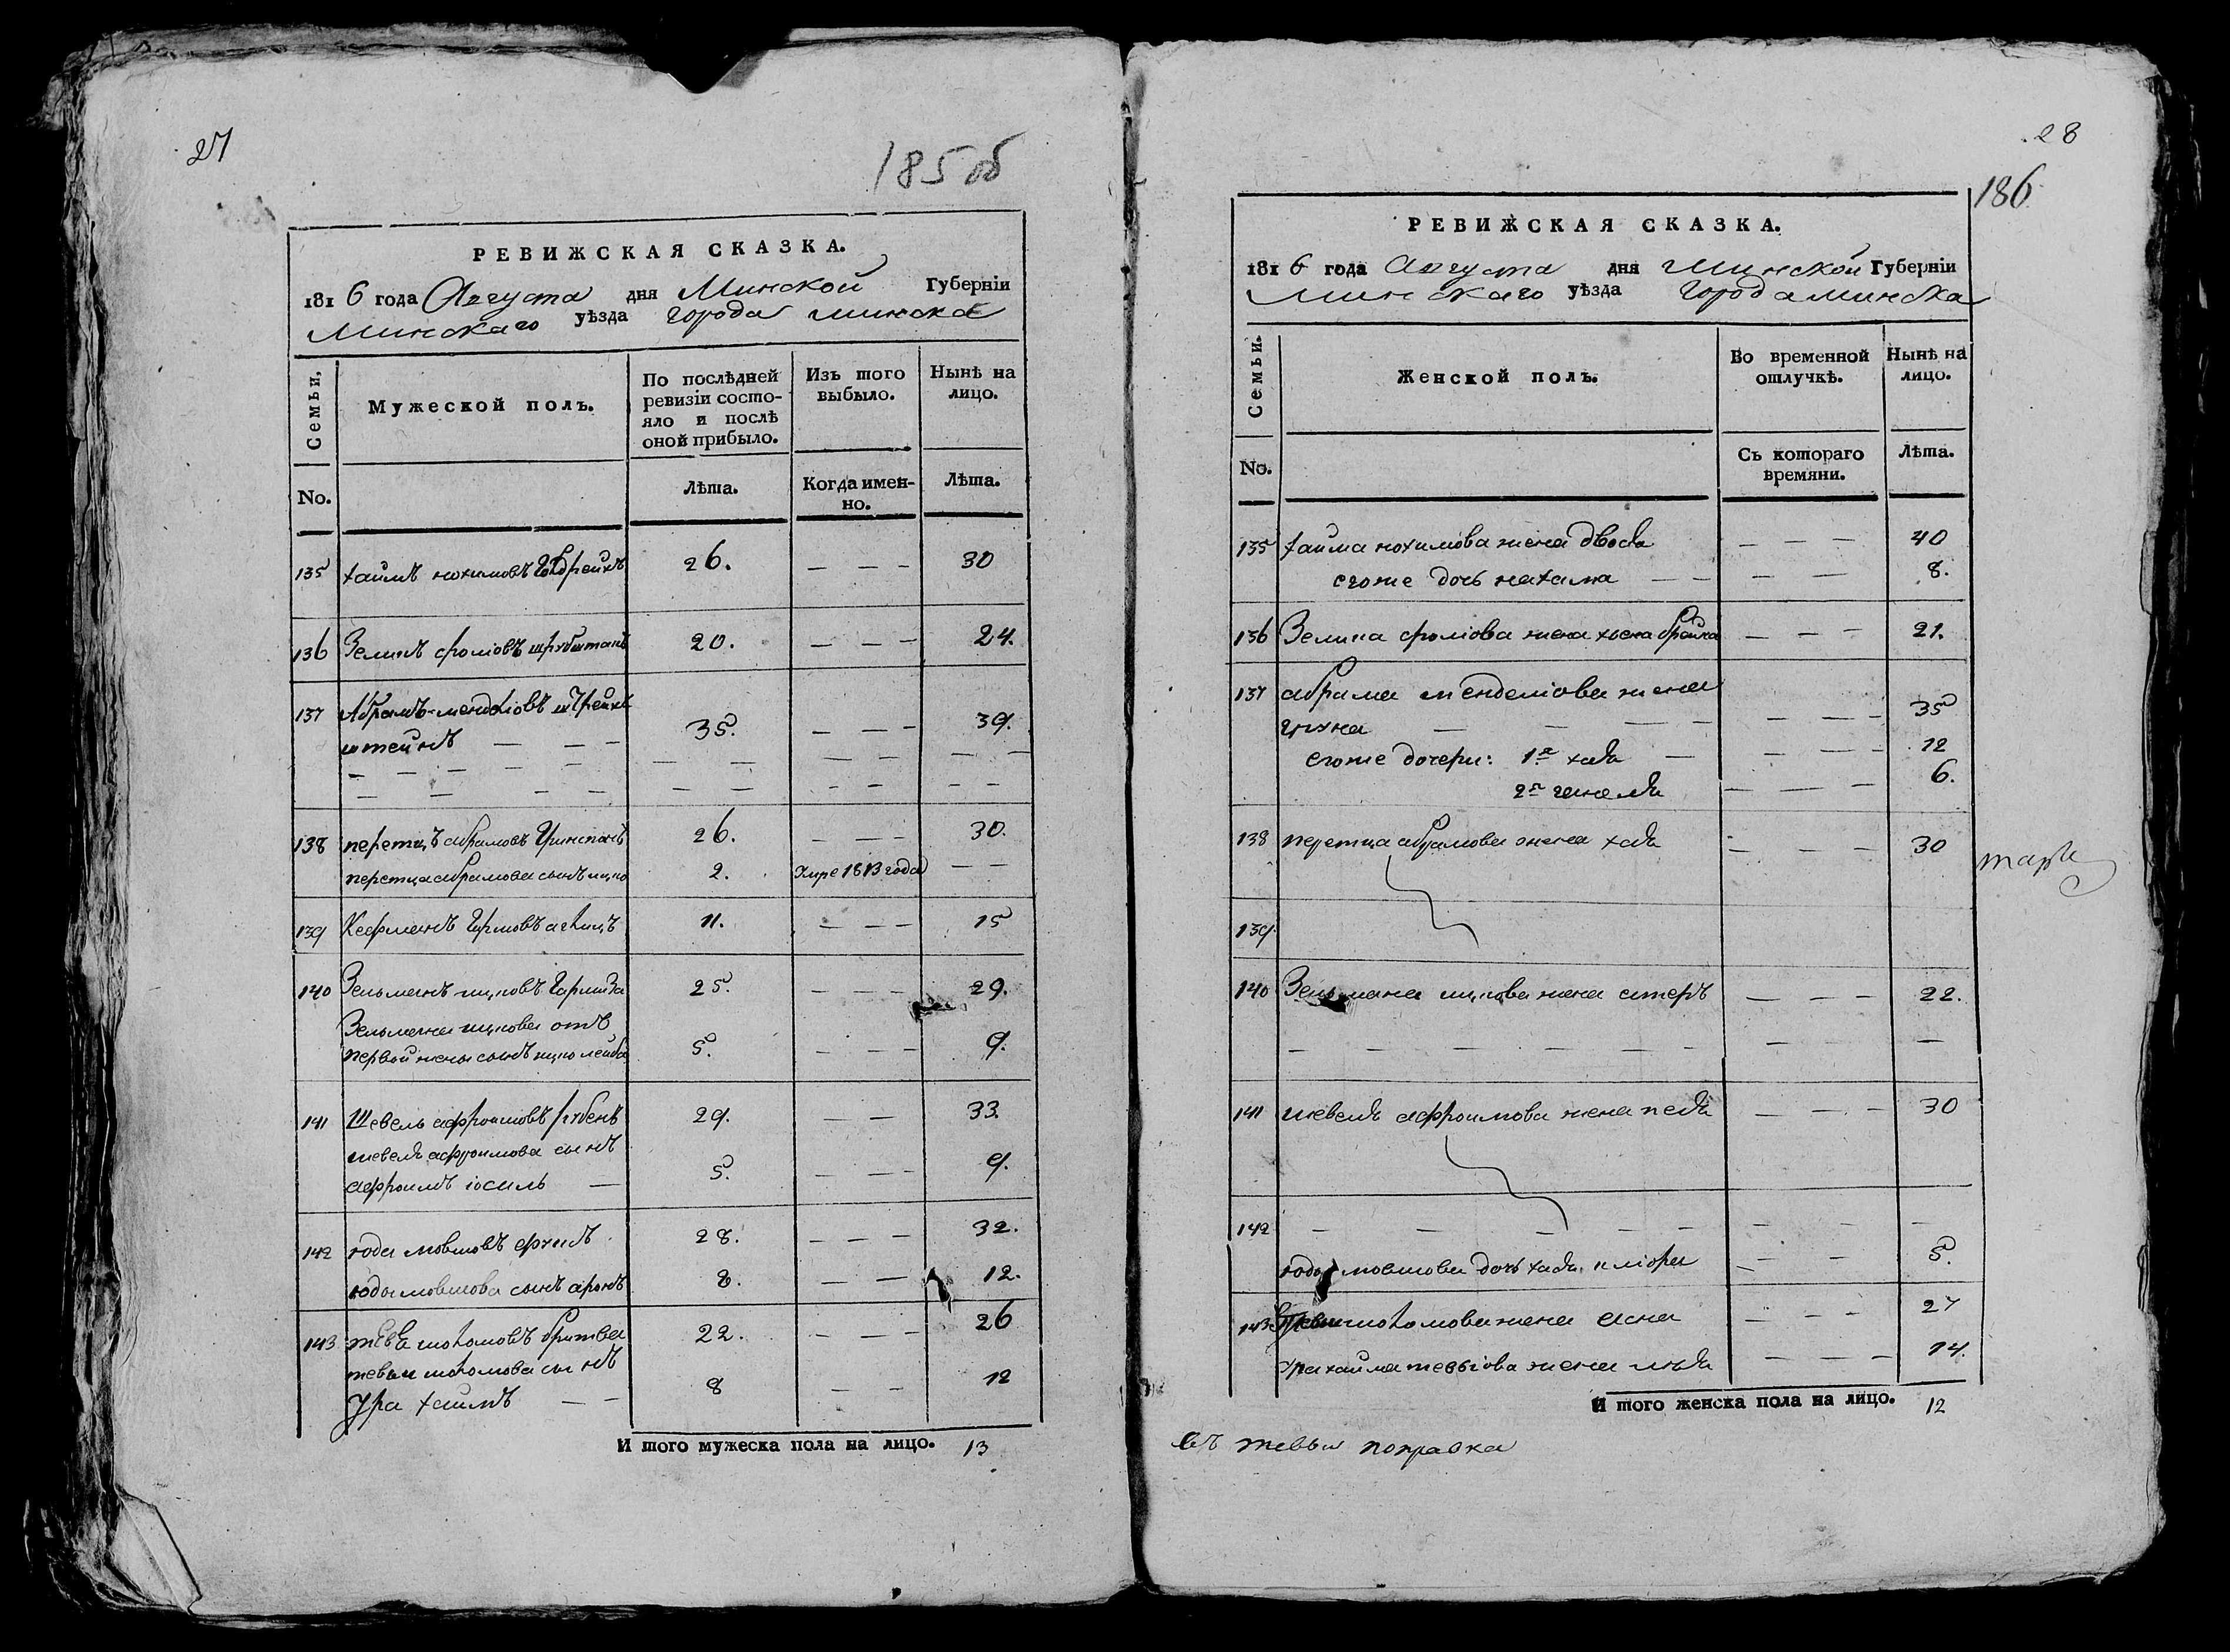 27
185 об
РЕВИЖСКАЯ СКАЗКА.
1816 года Августа дня Минской Губерніи
Минскаго уѣзда города минска
Семьи,
Мужеской полъ.
По послѣдней ревизіи состо-
яло и послѣ
оной прибыло.
Изъ того
выбыло.
Нынѣ на
лицо.
No.
Лѣта.
Когда имен-
но.
Лѣта.
135 хаимъ нохимовъ 26. — — — 30
136 Зеликъ фроловъ 20. — — — 24.
137 Абрамъ менделіовъ
штейнъ — — — 35. — — — 39.
138 перетцъ абрамовъ Гринспанъ 26. — — — 30.
перетца абрамова сынъ ицко 2. Умре 1813 года — —
139 11. — — — 15
140 Зельманъ ицковъ 25. — — — 29.
Зельмана ицкова отъ
первой жены сынъ ицко лейба 5. — — — 9.
141 Шевель афроимовъ рубенъ 29. — — 33
шевеля афроимова сынъ
афроимъ іосиль — 5. — — 9.
142 юда мовшовъ 28. — — — 32.
юды мовшова сынъ аронъ 8. — — 12.
143 шоломовъ бритва 22. — — — 26
тевьи шоломова сынъ
Ура хаимъ — — 8 — — 12
И того мужеска пола на лицо. 13
28
186
РЕВИЖСКАЯ СКАЗКА.
1816 года Августа дня Минской Губерніи
Минскаго уѣзда города минска
Семьи.
Женской полъ.
Во временной
отлучкѣ.
Нынѣ на
лицо.
No.
Съ котораго
времяни.
Лѣта.
135 хаима нохимова жена двося — — — 40
егоже дочь нахама — — — — 8.
136 Зелика фроліова жена хьена брейна — — — 21.
137 абрама менделіова жена
— — — — — — 35
егоже дочери: 1я хая — — — — 12
2я генеля — — — 6.
138 перетца абрамова жена хая — — — 30
139
140 Зельмана ицкова жена естеръ — — — 22.
— — — — — — — — —
141 шевеля афроимова жена песя — — — 30
142 — — — — — — — —
юды мовшова дочь хая — — 5.
143 шоломова жена асна — — — 27
Ура хаима тевьіова жена — — — 14.
И того женска пола на лицо. 12
въ тевьи поправка